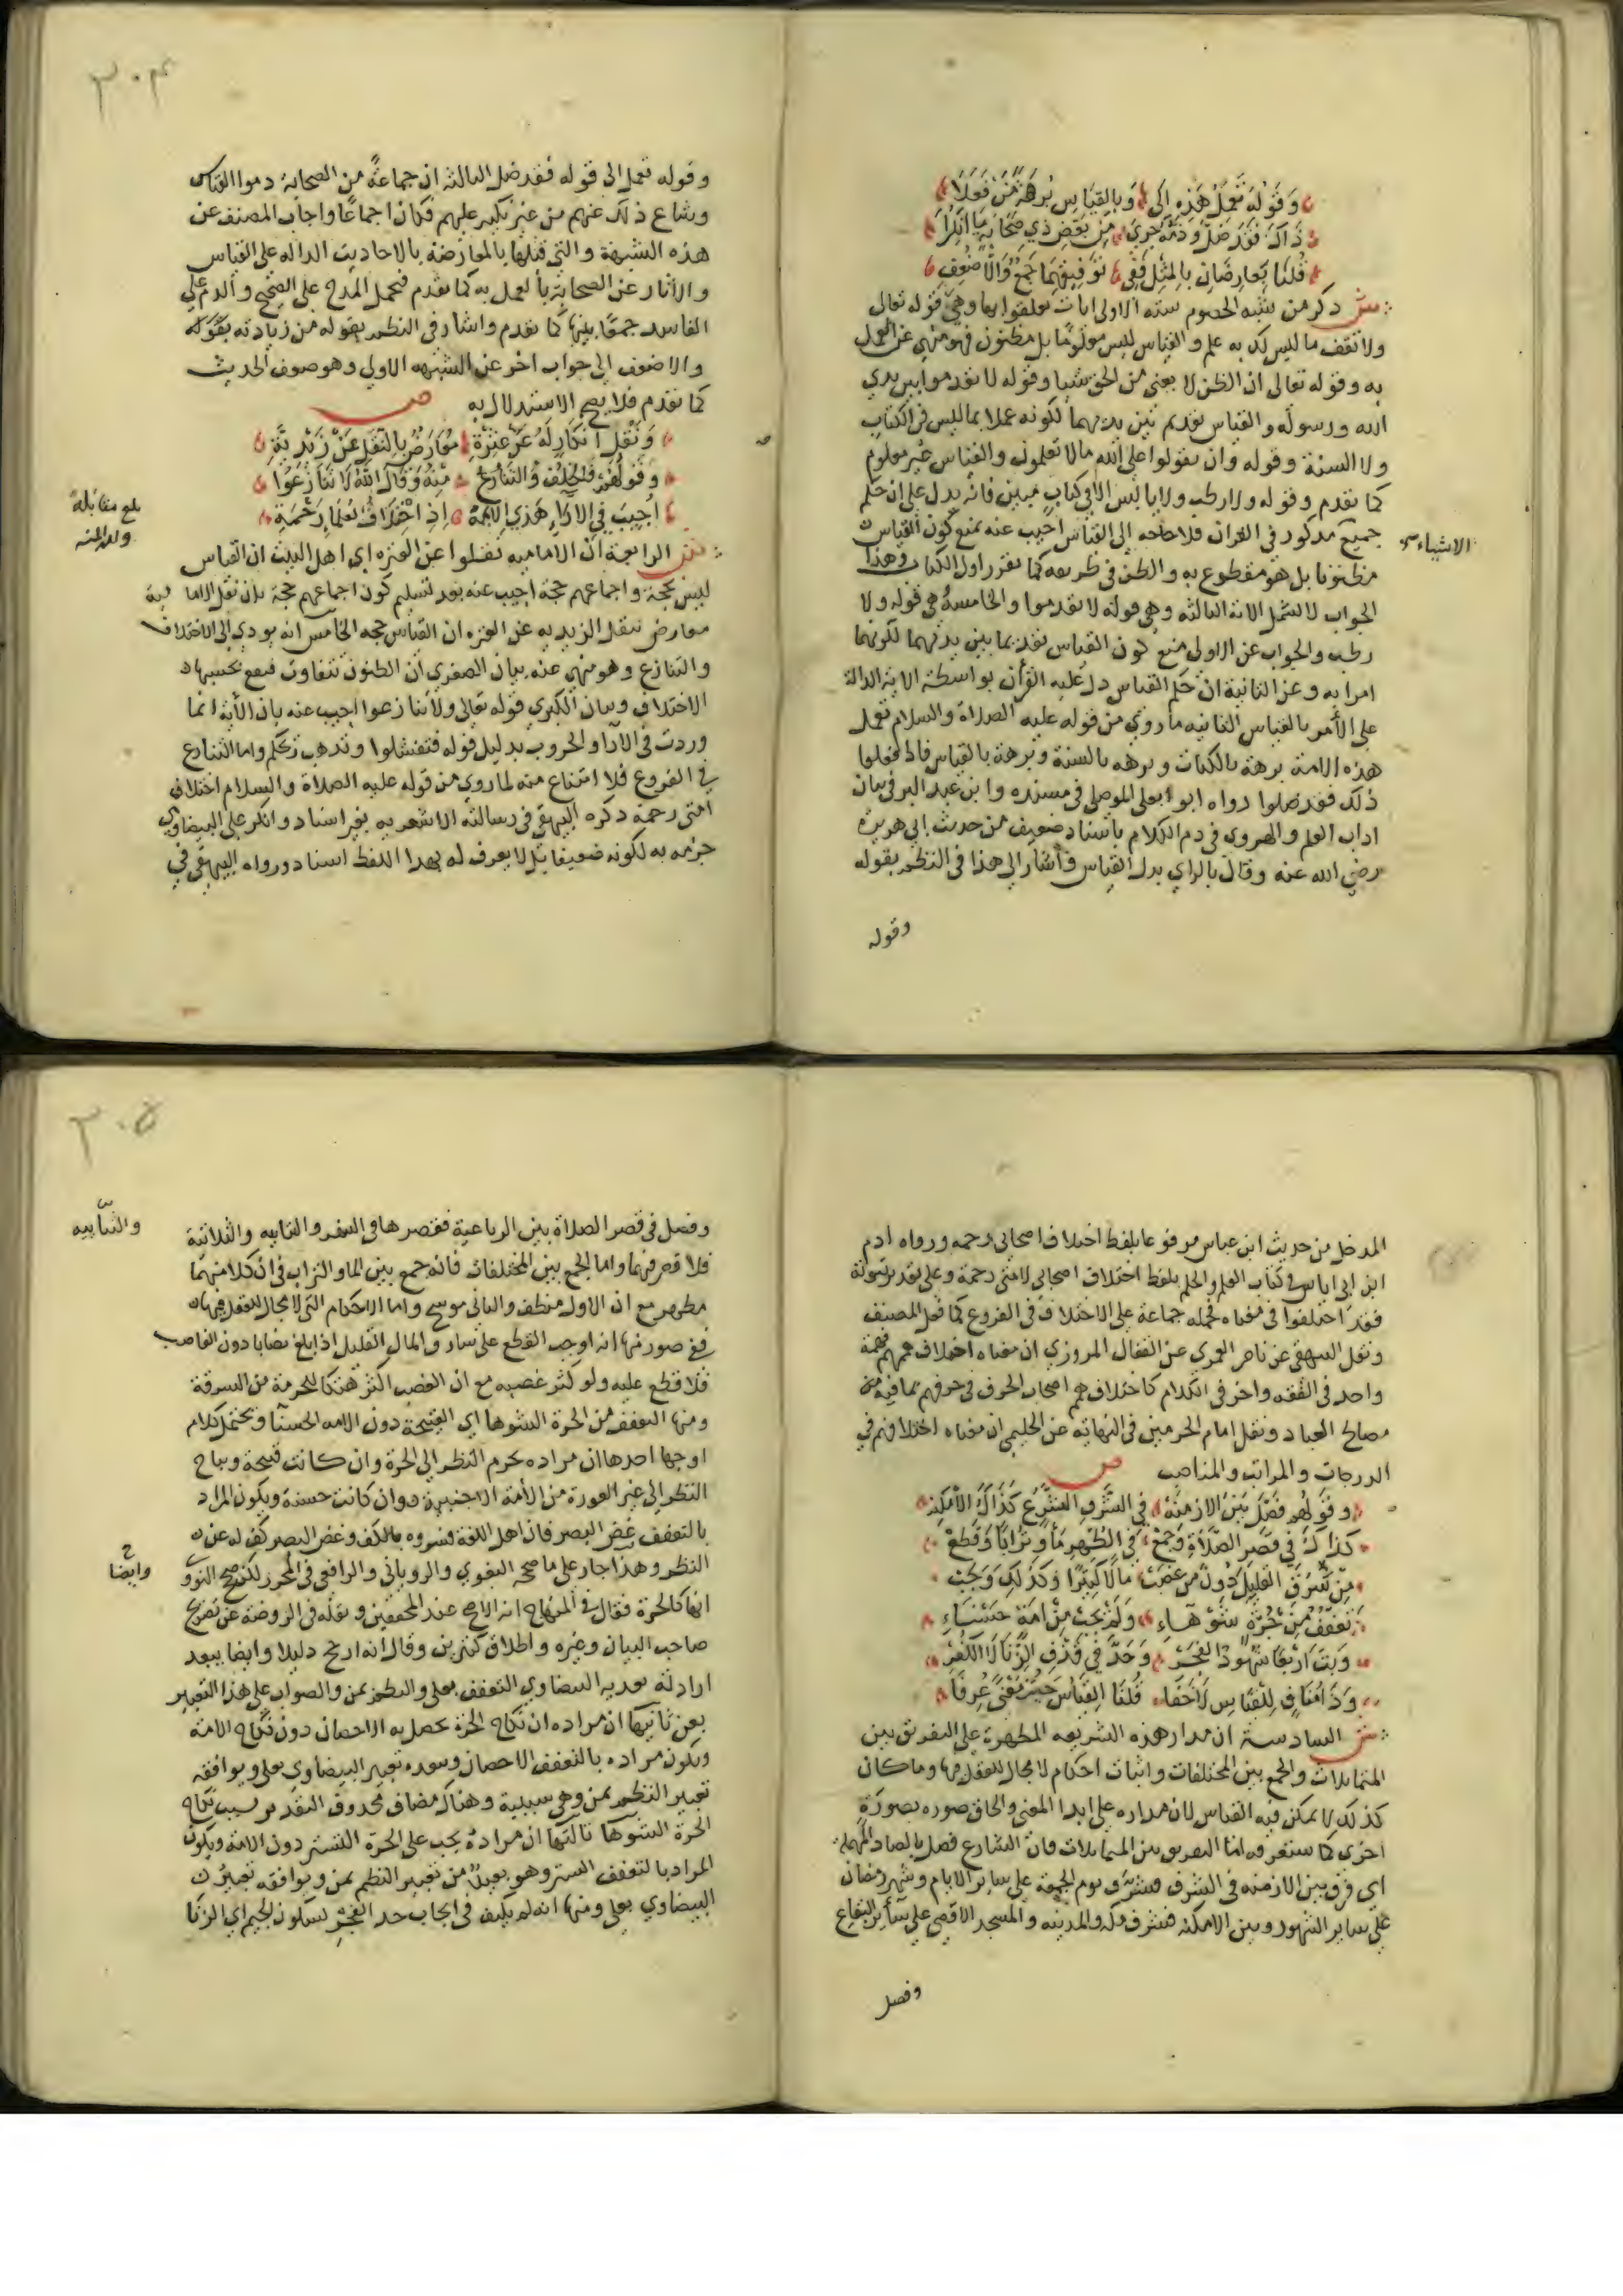 وقوله تعمل هذه الى وبالقياس برهة من فعلا
ذاك فقد ضل وذمه جرى من بعض ذي صحابة ما انكرا
قلنا تعارضان بالمثل ففي توفيقهما جمع والاضعف
ش ذكر من شبه الخصوم ستة الاولى ايات تعلقوا بها وهي قوله تعالى
ولا تقف ما ليس لك به علم والقياس ليس معلوما بل مظنون فهو منهي عن العمل
به وقوله تعالى ان الظن لا يغني من الحق شيا وقوله لا تقدموا بين يدي
الله ورسوله والقياس تقديم بين يديهما لكونه عملا بما ليس في الكتاب
ولا السنة وقوله وان تقولوا على الله مالا تعلمون والقياس غير معلوم
كما تقدم وقوله ولا رطب ولا يابس الا في كتاب مبين فانه يدل على ان حكم
جميع مذكور في القران فلا حاجه الى القياس اجيب عنه بمنع كون القياس
الاشياء
مظنونا بل هو مقطوع به والظن في طريقه كما تقرر اول الكتاب وهذا
الجواب لا يشمل الاية الثالثه وهي قوله لا تقدموا والخامسة هي قوله ولا
رطب والجواب عن الاولى منع كون القياس تقديما بين يديهما لكونهما
امرا به وعن الثانية ان حكم القياس دل عليه القرآن بواسطة الاية الدالة
على الأمر بالقياس الثانيه ما روي من قوله عليه الصلاة والسلام تعمل
هذه الامة برهة بالكتاب وبرهه بالسنة وبرهة بالقياس فاذا فعلوا
ذلك فقد ضلوا رواه ابو يعلى الموصلي في مسنده وابن عبد البر في بيان
اداب العلم والهروي في ذم الكلام باسناد ضعيف من حديث ابي هريرة
رضي الله عنه وقال بالراي بدل القياس وأشار الى هذا في النظم بقوله
وقوله
٣٠٤
وقوله تعمل الى قوله فقد ضل الثالثه ان جماعة من الصحابة ذموا القياس
وشاع ذلك عنهم من غير نكير عليهم فكان اجماعا واجاب المصنف عن
هذه الشبهة والتي قبلها بالمعارضة بالاحاديث الداله على القياس
والآثار عن الصحابة بالعمل به كما تقدم فيحمل المدح على الصحيح والذم على
الفاسد جمعا بينها كما تقدم واشار في النظم بقوله من زيادته بقوله
والاضعف الى جواب اخر عن الشبهه الاولى وهو ضعف الحديث
كما تقدم فلا يصح الاستدلال به ص
ونقل انكار له عن عترة معارض بالنقل عن زيدية
وقولهم فلخلف والتنازع منه وقال الله لا تنازعوا
اجيب في الآراء هذي الآية اذ اختلاف العلما رحمة
بلغ مقابلة
ولله المنه
ش الرابعة ان الاماميه نقلوا عن العتره اي اهل البيت ان القياس
ليس بحجة واجماعهم حجة اجيب عنه بعد تسليم كون اجماعهم حجة بان نقل الامامية
معارض بنقل الزيديه عن العتره ان القياس حجه الخامس انه يودي الى الاختلاف
والتنازع وهو منهي عنه بيان الصغرى ان الظنون تتفاوت فيقع بحسبها
الاختلاف وبيان الكبرى قوله تعالى ولا تنازعوا اجيب عنه بان الآية انما
وردت في الآراء والحروب بدليل قوله فتفشلوا وتذهب ريحكم واما التنازع
في الفروع فلا امتناع منه لما روي من قوله عليه الصلاة والسلام اختلاف
امتي رحمة ذكره البيهقي في رسالته الاشعريه بغير اسناد وانكر على البيضاوي
جزمه به لكونه ضعيفا بل لا يعرف له بهذا اللفظ اسناد ورواه البيهقي في
المدخل من حديث ابن عباس مرفوعا بلفظ اختلاف اصحابي رحمه ورواه ادم
ابن ابي اياس في كتاب العلم والحلم بلفظ اختلاف اصحابي لامتي رحمة وعلى تقدير ثبوته
فقد اختلفوا في معناه فحمله جماعة على الاختلاف في الفروع كما فعل المصنف
ونقل البيهقي عن ناصر العمري عن القفال المروزي ان معناه اختلاف هممهم فهمة
واحد في الفقه واخر في الكلام كاختلاف همم اصحاب الحرف في حرفهم بما فيه من
مصالح العباد ونقل امام الحرمين في النهاية عن الحليمي ان معناه اختلافهم في
الدرجات والمراتب والمناصب ص
وقولهم فصل بين الازمنة في الشرف الشرع كذاك الأمكنه
كذاك في قصر الصلاة وجمع في الطهر ماء وترابا وقطع
من سرق القليل دون من غصب مالا كبيرا وكذلك وجب
تعفف من حرة شوهاء ولم يجب من امة حسناء
وبت اربعا شهود الفجر وحد في قذف الزنا لا الكفر
وذا مناف للقياس لا خفا قلنا القياس حيث معنى عرفا
ش السادسة ان مدار هذه الشريعه المطهرة على التفريق بين
المتماثلات والجمع بين المختلفات واثبات احكام لا مجال للعقل فيها وما كان
كذلك لا يمكن فيه القياس لان مداره على ابدا المعنى والحاق صوره بصورة
اخرى كما ستعرفه اما التفريق بين المتماثلات فان الشارع فصل بالصاد المهملة
اي فرق بين الازمنه في الشرف فشرف يوم الجمعة على ساير الايام وشهر رمضان
على ساير الشهور وبين الامكنه فشرف مكه والمدينه والمسجد الاقصى على سائر البقاع
وفصل
٣٠٥
وفصل في قصر الصلاة بين الرباعية فقصرها في السفر والثنائيه والثلاثية
والثنائيه
فلا قصر فيها واما الجمع بين المختلفات فانه جمع بين الماء والتراب في ان كلا منهما
مطهر مع ان الاول منظف والثاني موسخ واما الاحكام التي لا مجال للعقل فيها
ففي صور منها انه اوجب القطع على سارق المال القليل اذا بلغ نصابا دون الغاصب
فلا قطع عليه ولو كثر غصبه مع ان الغصب اكثر هتكا للحرمة من السرقة
ومنها التعفف من الحرة الشوها اي القبيحة دون الامه الحسنا ويحتمل كلام
اوجها احدها ان مراده يحرم النظر الى الحرة وان كانت قبيحة ويباح
النظر الى غير العورة من الأمة الاجنبية وان كانت حسنة ويكون المراد
بالتعفف غض البصر فان اهل اللغة فسروه بالكف وغض البصر كف له عن
النظر وهذا جار على ما صححه البغوي والروياني والرافعي في المحرر لكن صحح النووي
وايضا
انها كالحرة فقال في المنهاج انه الاصح عند المحققين ونقله في الروضة عن تصريح
صاحب البيان وغيره واطلاق كثيرين وقال انه ارجح دليلا وايضا يبعد
ارادته تعديه البيضاوي التعفف بعلى والنظم بمن والصواب على هذا التعبير
بعن ثانيها ان مراده ان نكاح الحرة يحصل به الاحصان دون نكاح الامة
ويكون مراده بالتعفف الاحصان ويبعده تعبير البيضاوي بعلى ويوافقه
تعبير النظم بمن وهي سببية وهناك مضاف محذوف التقدير بسبب نكاح
الحرة الشوها ثالثها ان مراده يجب على الحرة التستر دون الامة ويكون
المراد بالتعفف الستر وهو بعيد من تعبير النظم بمن ويوافقه تعبير
البيضاوي بعلى ومنها انه لم يكتف في ايجاب حد الفجر بسكون الجيم اي الزنا